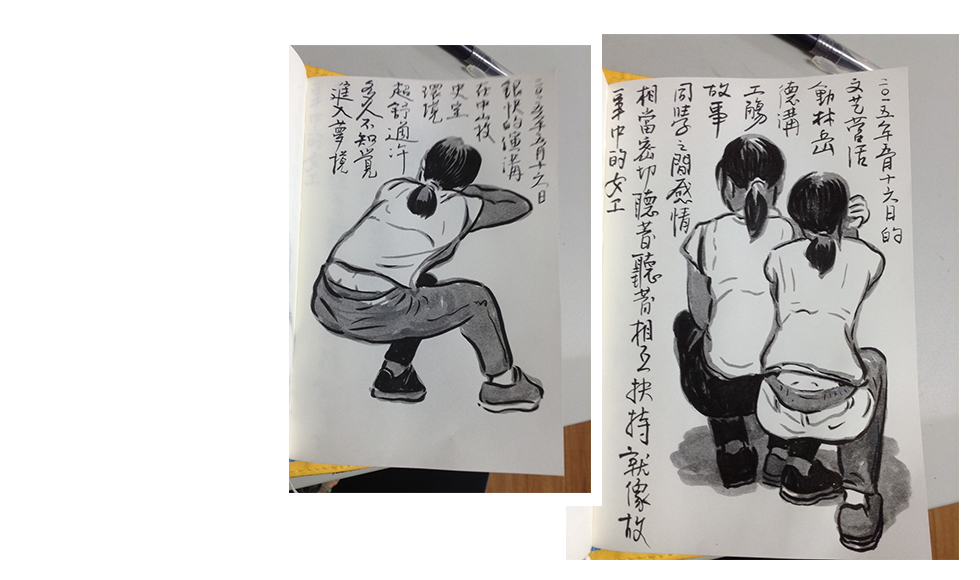 二〇一五年五月十六日
快的演講
在中山校
史室
環境
超舒適許
多人不知覺
進入夢境
二〇一五年五月十六日的
文艺營活
動林岳
德講
工殤
故事
同學之間感情
相當密切聽著聽著相互扶持就像故
事中的女工